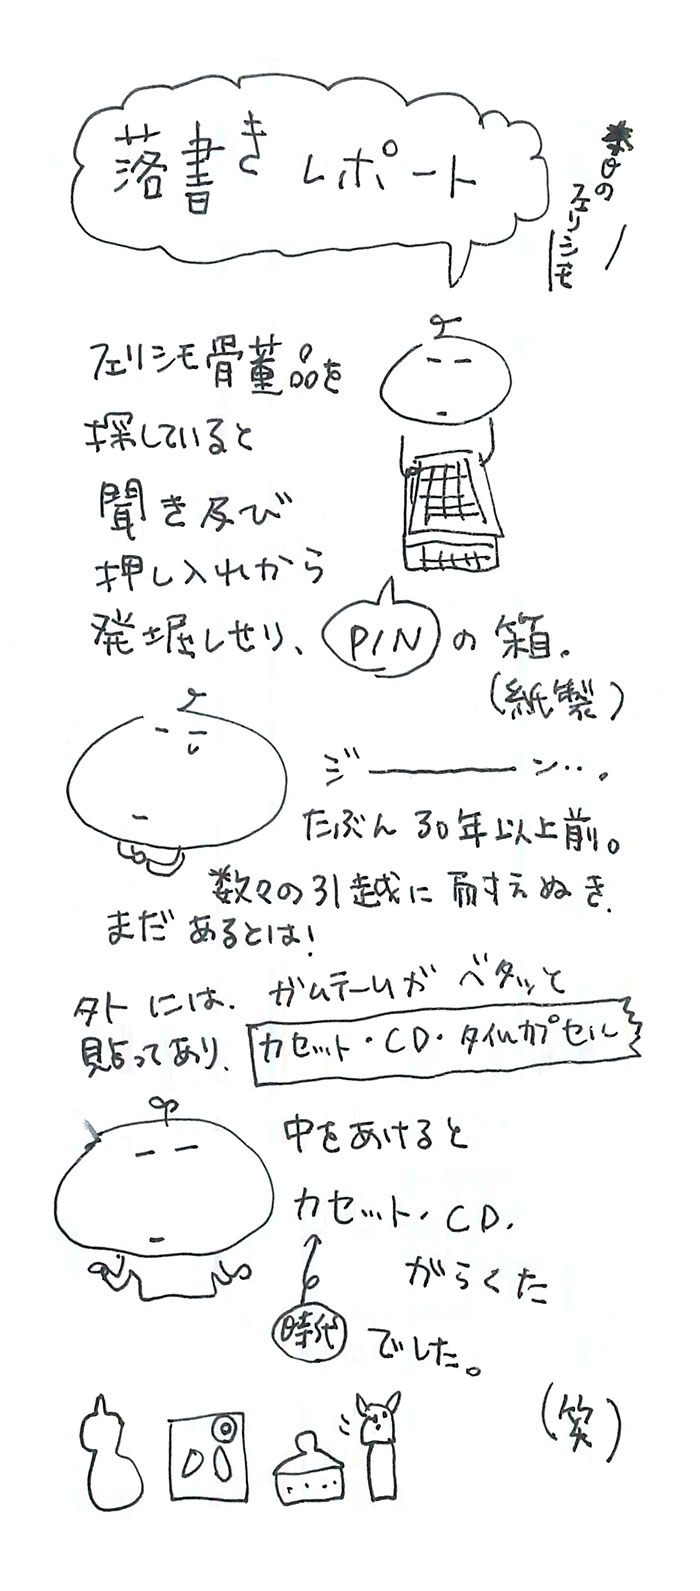 落書きレポート
昔の
フェリシモ
フェリシモ骨董品を
探していると
聞き及び
押し入れから
発掘しせり、PINの箱。
(紙製)
ジーーーーーン…。
たぶん30年以上前。
数々の引越に耐えぬき、
まだあるとは!
外には、ガムテームがベタッと
貼ってあり、カセット・CD・タイムカプセル
中をあけると
カセット・CD、
がらくた
時代
でした。
(笑)